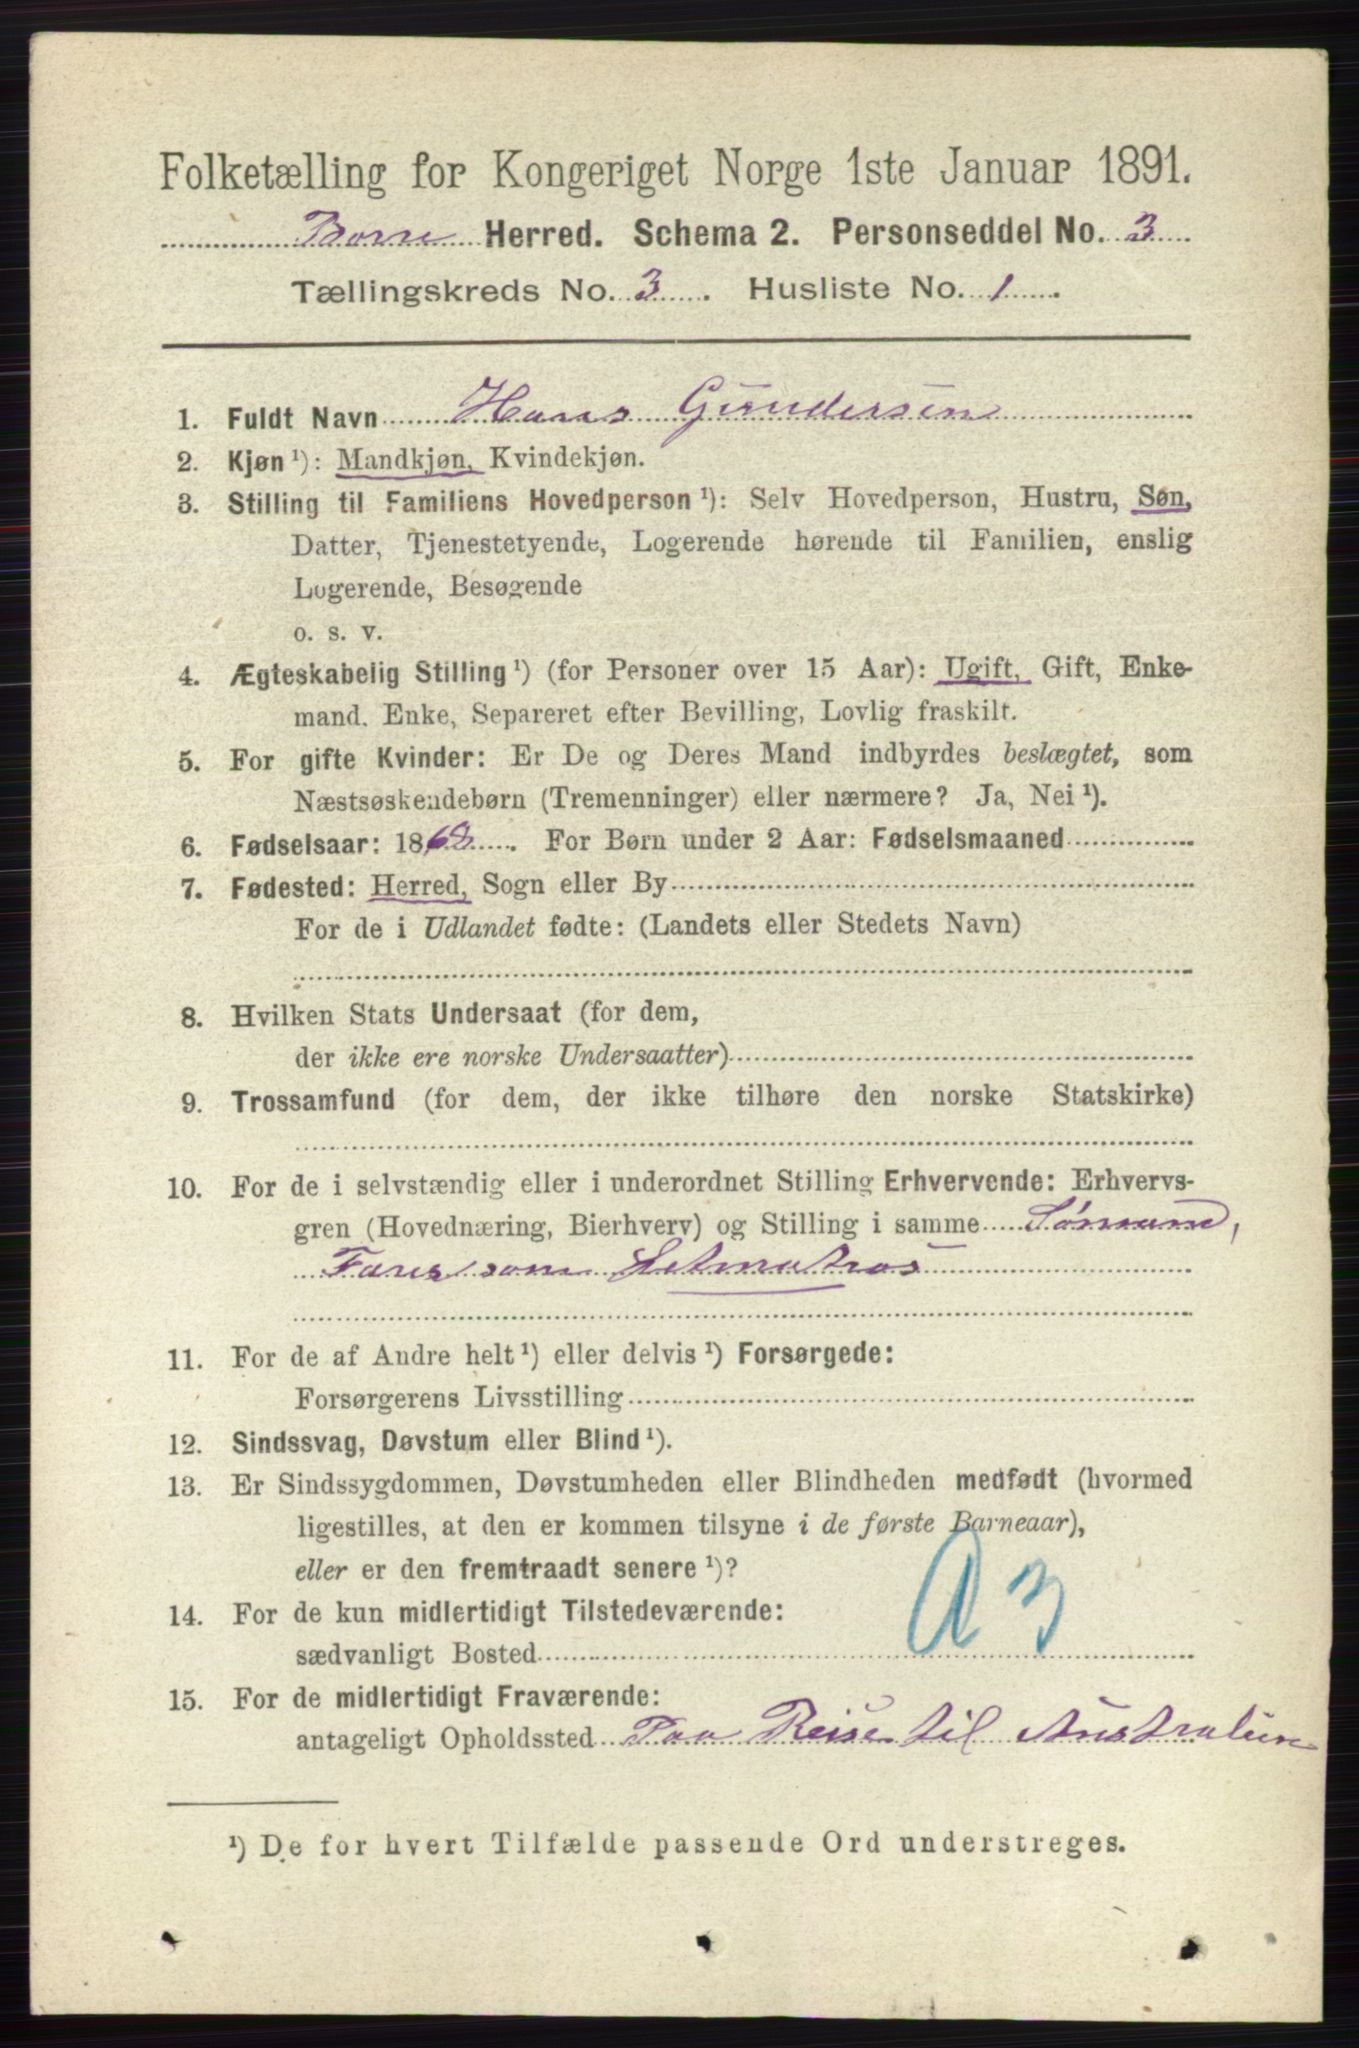 Folketælling for Kongeriget Norge 1ste Januar 1891.
Borre Herred. Schema 2. Personseddel No. 3
Tællingskreds No. 3. Husliste No. 1.
1. Fuldt Navn Hans Gundersen
2. Kjøn ¹): Mandkjøn, Kvindekjøn.
3. Stilling til Familiens Hovedperson ¹): Selv Hovedperson, Hustru, Søn,
Datter, Tjenestetyende, Logerende hørende til Familien, enslig
Logerende, Besøgende
o. s. v.
4. Ægteskabelig Stilling ¹) (for Personer over 15 Aar): Ugift, Gift, Enke-
mand, Enke, Separeret efter Bevilling, Lovlig fraskilt.
5. For gifte Kvinder: Er De og Deres Mand indbyrdes beslægtet, som
Næstsøskendebørn (Tremenninger) eller nærmere? Ja, Nei ¹).
6. Fødselsaar: 1868. For Børn under 2 Aar: Fødselsmaaned
7. Fødested: Herred, Sogn eller By
For de i Udlandet fødte: (Landets eller Stedets Navn)
8. Hvilken Stats Undersaat (for dem,
der ikke ere norske Undersaatter)
9. Trossamfund (for dem, der ikke tilhøre den norske Statskirke)
10. For de i selvstændig eller i underordnet Stilling Erhvervende: Erhvervs-
gren (Hovednæring, Bierhverv) og Stilling i samme Sømand,
Farer som Letmatros
11. For de af Andre helt ¹) eller delvis ¹) Forsørgede:
Forsørgerens Livsstilling
12. Sindssvag, Døvstum eller Blind ¹).
13. Er Sindssygdommen, Døvstumheden eller Blindheden medfødt (hvormed
ligestilles, at den er kommen tilsyne i de første Barneaar),
eller er den fremtraadt senere ¹)?
A 3
14. For de kun midlertidigt Tilstedeværende:
sædvanligt Bosted
15. For de midlertidigt Fraværende:
antageligt Opholdssted Paa Reise til Australien
¹) De for hvert Tilfælde passende Ord understreges.